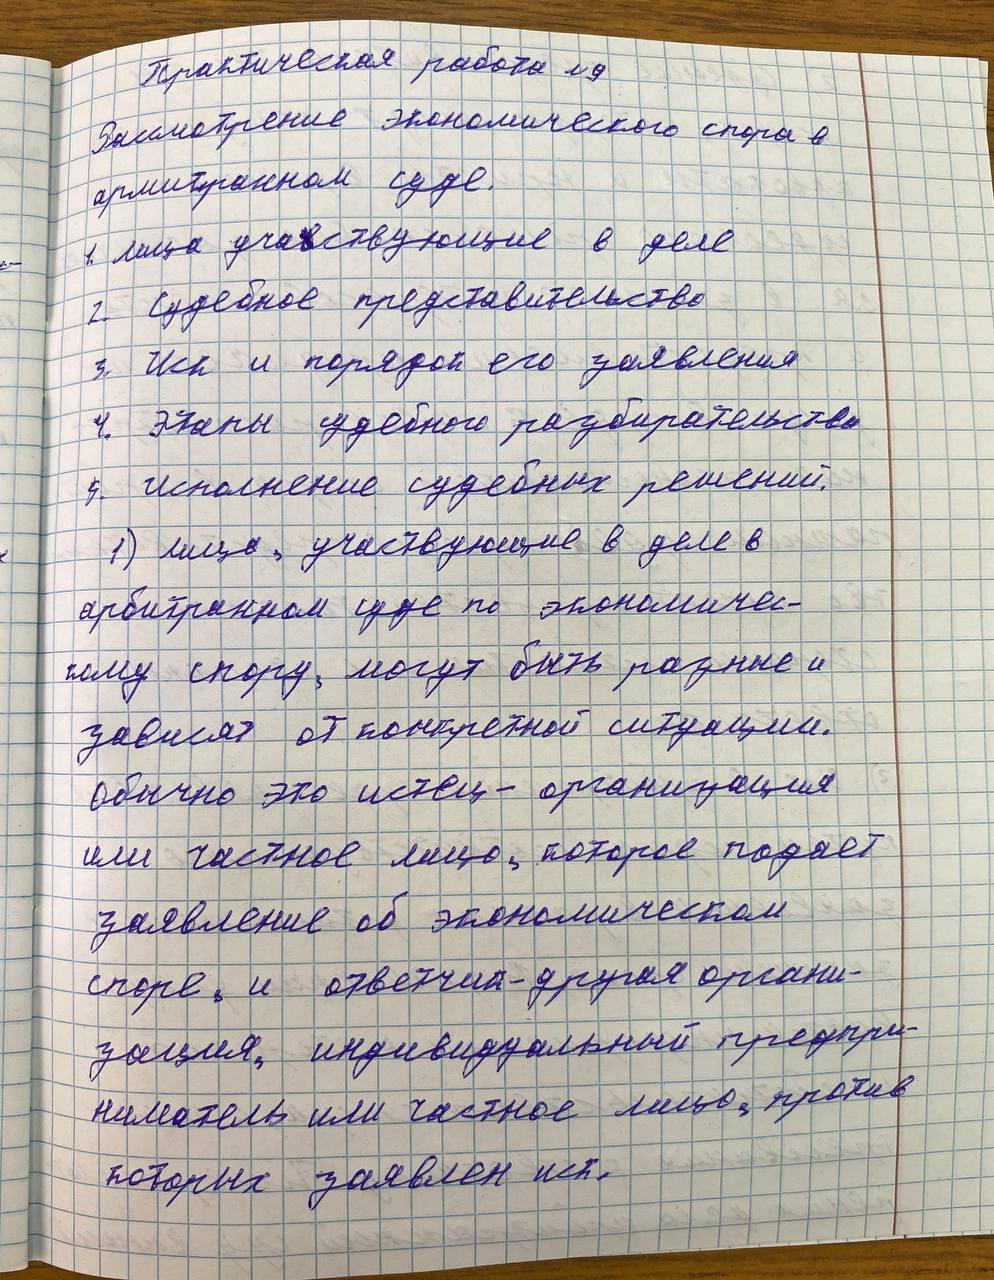 Практическая работа №9
Рассмотрение экономического спора в
армитранном суде.
1. лица участвующие в деле
2. Судебное представительство
3. Иск и порядок его заявления
4. Этапы судебного разбирательства
5. Исполнение судебных решений.
1) лица, участвующие в деле в
арбитранном суде по экономичес-
кому спору, могут быть разные и
зависят от конкретной ситуации.
Обычно это истец - организация
или частное лицо, которое подает
заявление об экономическом
споре, и ответчик - другая органи-
зация, индивидуальный предпри-
ниматель или частное лицо, против
которых заявлен иск.